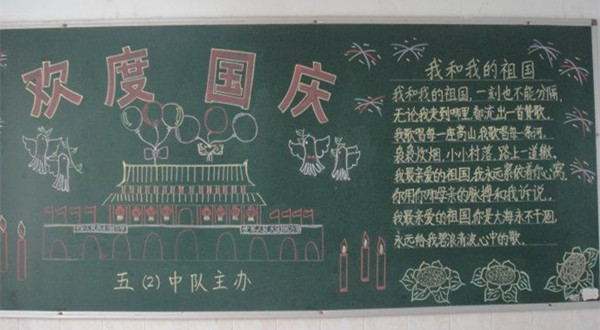 欢度国庆
五(2)中队主办
我和我的祖国
我和我的祖国,一刻也不能分隔,
无论我走到哪里,都流出一首赞歌。
我歌唱每一座高山,我歌唱每一条河。
袅袅炊烟,小小村落,路上一道辙。
我最亲爱的祖国,我永远紧依着你心窝,
你用你母亲的脉搏和我诉说。
我最亲爱的祖国,你是大海永不干涸。
永远给我碧浪清波心中的歌。